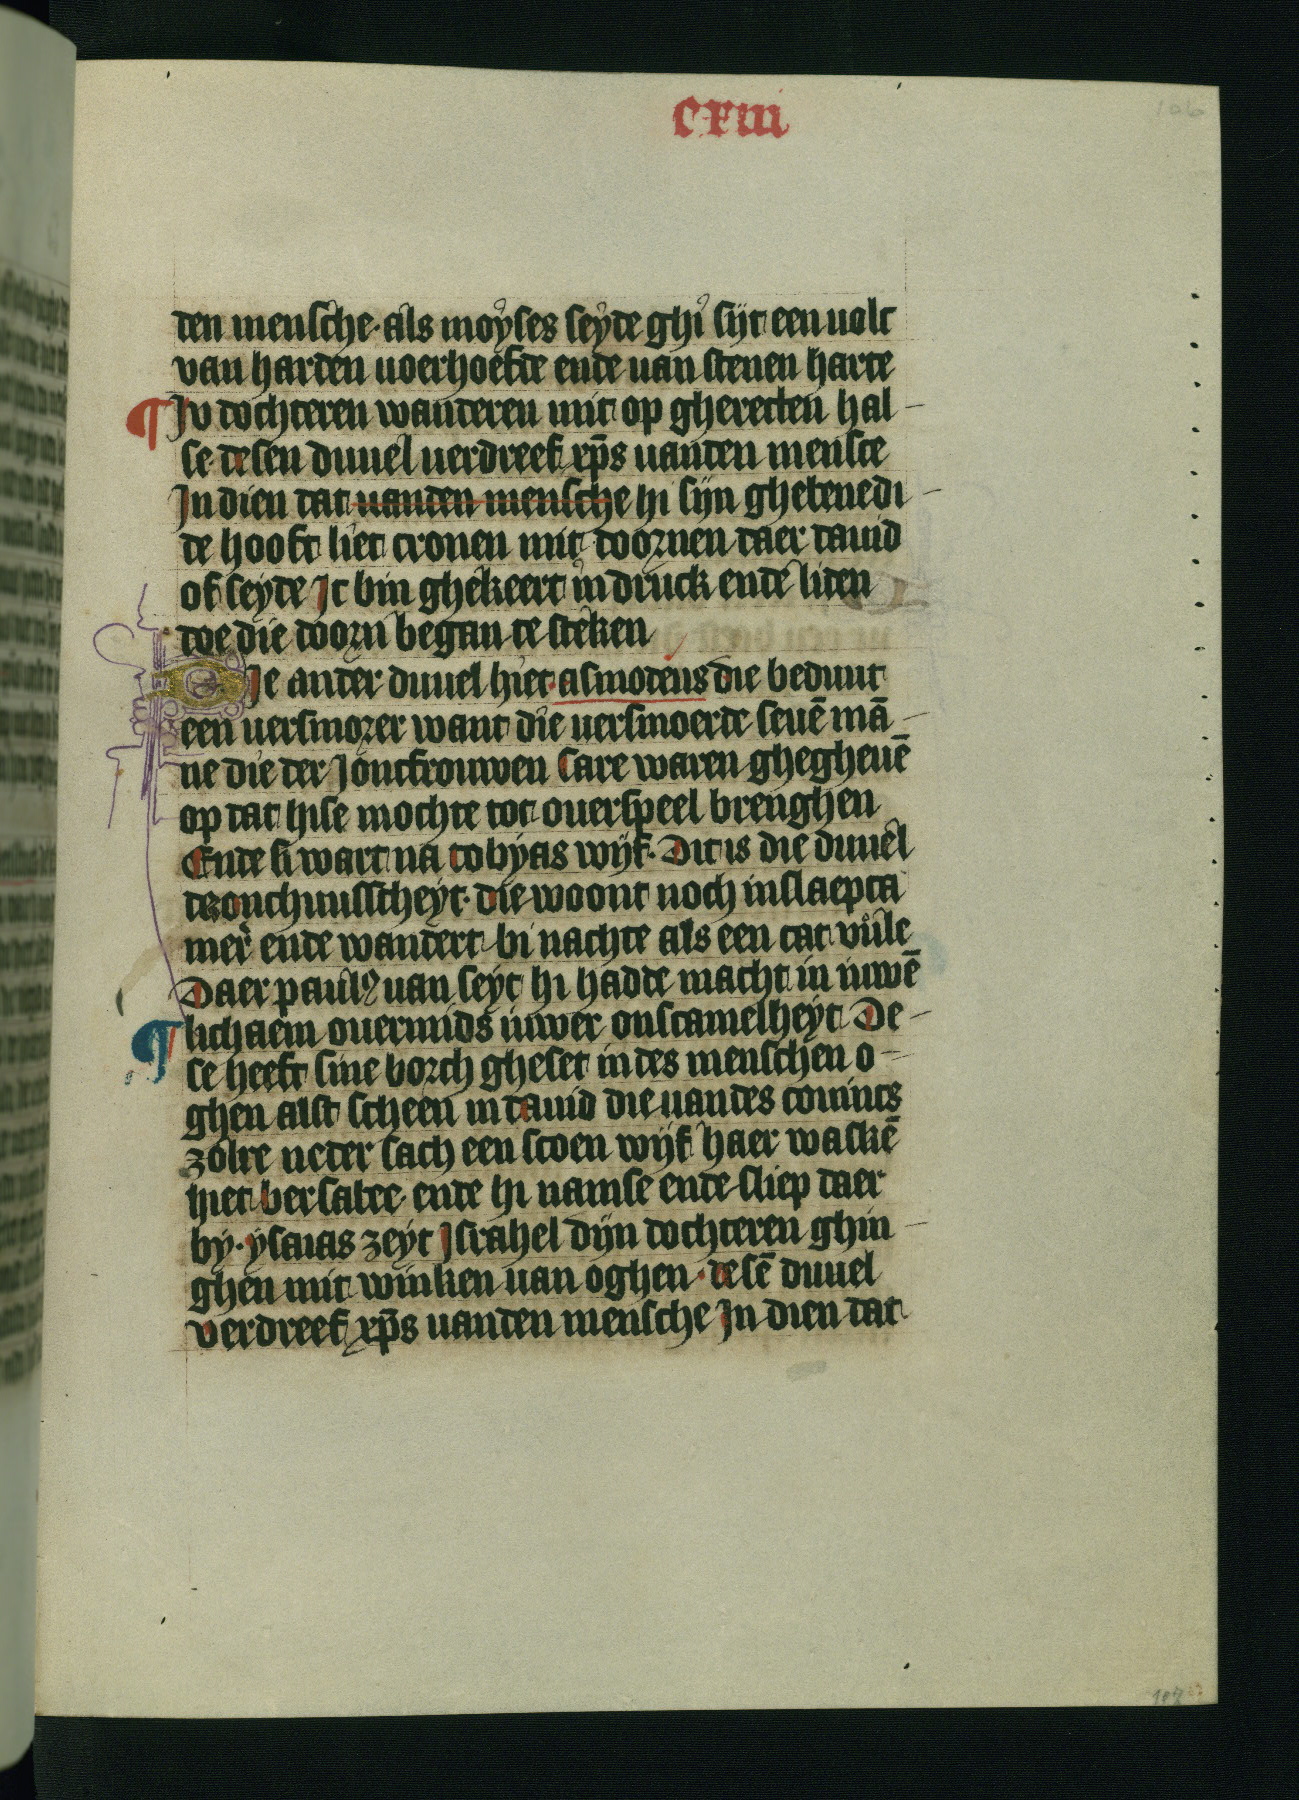 cxiii
106
den mensche· als moyses seyde ghi sijt een uolc
van harden uoerhoefde ende uan stenen harte
¶ Ju dochteren wanderen mit op gherecten hal-
se desen duuel uerdreef xp̄s uanden mensce
Jn dien dat uanden mensche hi sijn ghebenedi-
de hooft liet cronen mit doornen daer dauid
of seyde Jc bin ghekeert in druck ende liden
doe die doorn began te steken
Die ander duuel hiet· asmodeus die beduut
een uersmorer want die uersmoerde seuē mā-
ne die der joncfrouwen sare waren ghegheuē
op dat hise mochte tot ouerspeel brenghen
Ende si wart na tobyas wijf· Dit is die duuel
der onchuusscheyt· die woont noch in slaepca
mer ende wandert bi nachte als een cat vule
Daer paulꝰ uan seyt hi hadde macht in uwē
¶ lichaem ouermids uwer onscamelheyt De-
se heeft sine borch gheset in des menschen o-
ghen alst scheen in dauid die uan des conincs
zolre neder sach een scoen wijf haer waskē
hiet bersabee ende hi namse ende sliep daer
by· ysaias zeyt Jsrahel dijn dochteren ghin-
ghen mit winken uan oghen· desē duuel
verdreef xp̄s uanden mensche Jn dien dat